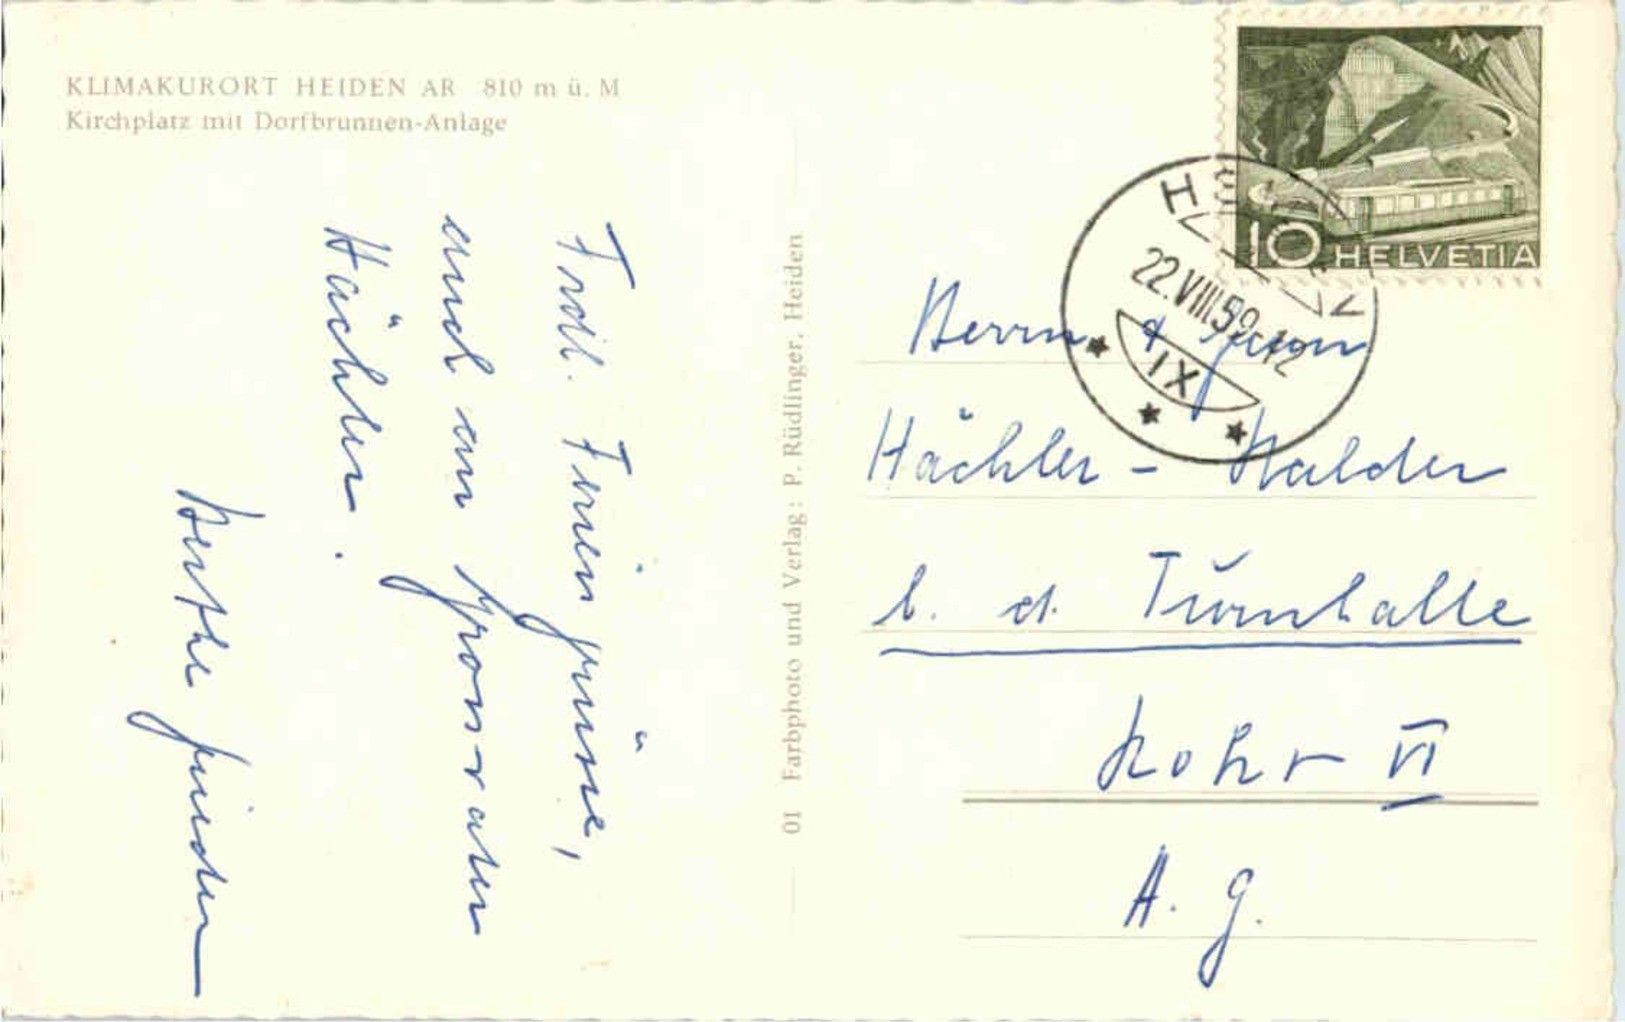 KLIMAKURORT HEIDEN AR 810 m ü. M
Kirchplatz mit Dorfbrunnen-Anlage
Frdl. Feriengrüsse,
auch an Grossvater
Hächler.
Berthe
01 Farbphoto und Verlag: P. Rüdlinger, Heiden
10 HELVETIA
HEIDEN
22.VIII.59.-12
IX
Herrn & Frau
Hächler - Halder
b. d. Turnhalle
Rohr VI
A. G.